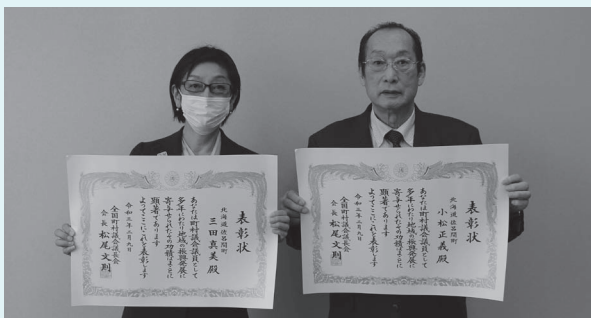 表彰状
北海道佐呂間町
三田真美殿
あなたは町村議会議員として
多年にわたり地域の振興発展に
寄与せられたその功績はまことに
顕著であります
よってここにこれを表彰します
令和三年二月九日
全国町村議会議長会
会長 松尾文則
表彰状
北海道佐呂間町
小松正義殿
あなたは町村議会議員として
多年にわたり地域の振興発展に
寄与せられたその功績はまことに
顕著であります
よってここにこれを表彰します
令和三年二月九日
全国町村議会議長会
会長 松尾文則